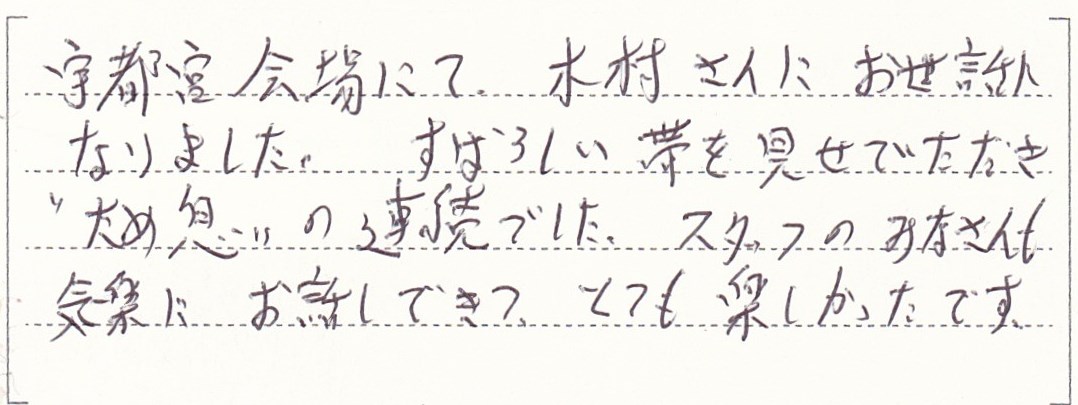 宇都宮会場にて、木村さんにお世話に
なりました。すばらしい帯を見せていただき
"ため息"の連続でした。スタッフのみなさんも
気楽にお話しできて、とても楽しかったです。